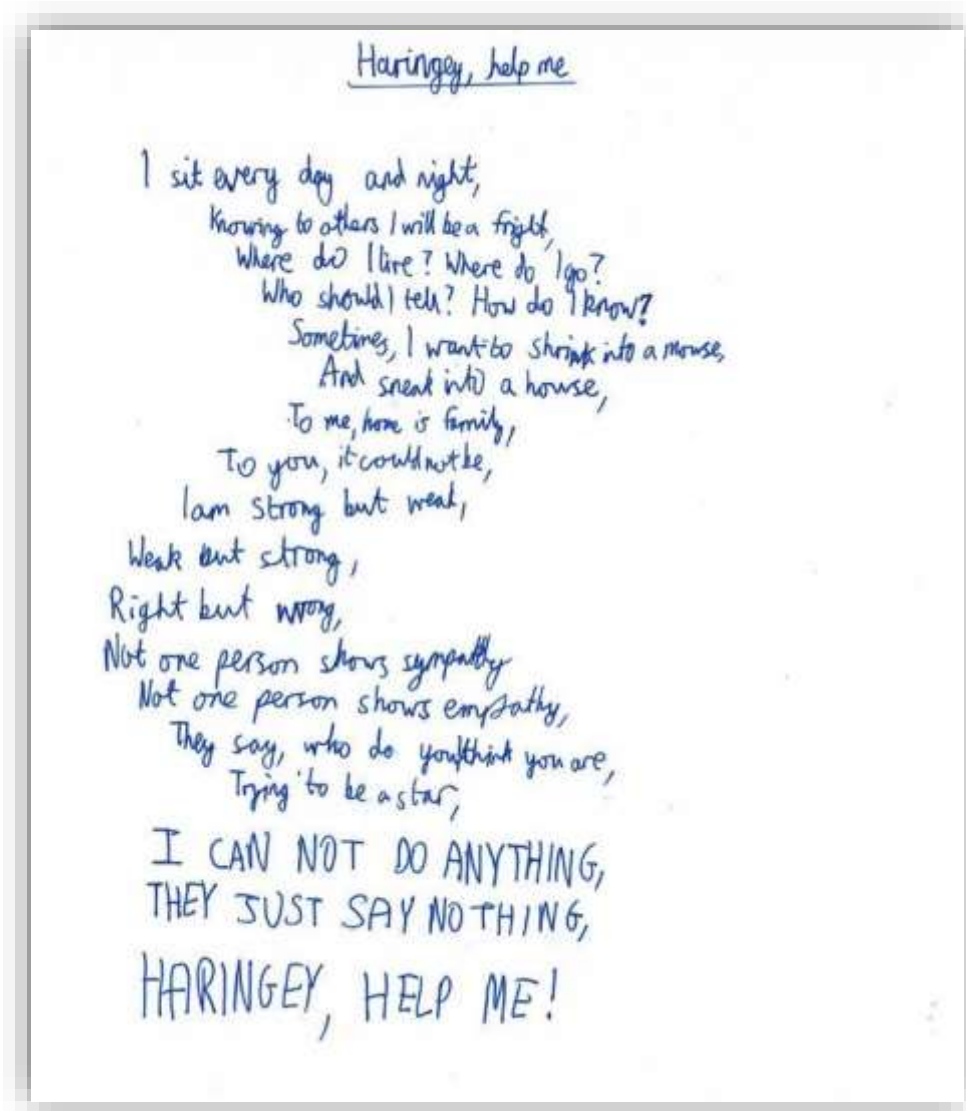 Haringey, help me
I sit every day and night,
Knowing to others I will be a fright,
Where do I live? Where do I go?
Who should I tell? How do I know?
Sometimes, I want to shrink into a mouse,
And sneak into a house,
To me, home is family,
To you, it could not be,
I am strong but weak,
Weak but strong,
Right but wrong,
Not one person shows sympathy
Not one person shows empathy,
They say, who do you think you are,
Trying to be a star,
I CAN NOT DO ANYTHING,
THEY JUST SAY NOTHING,
HARINGEY, HELP ME!